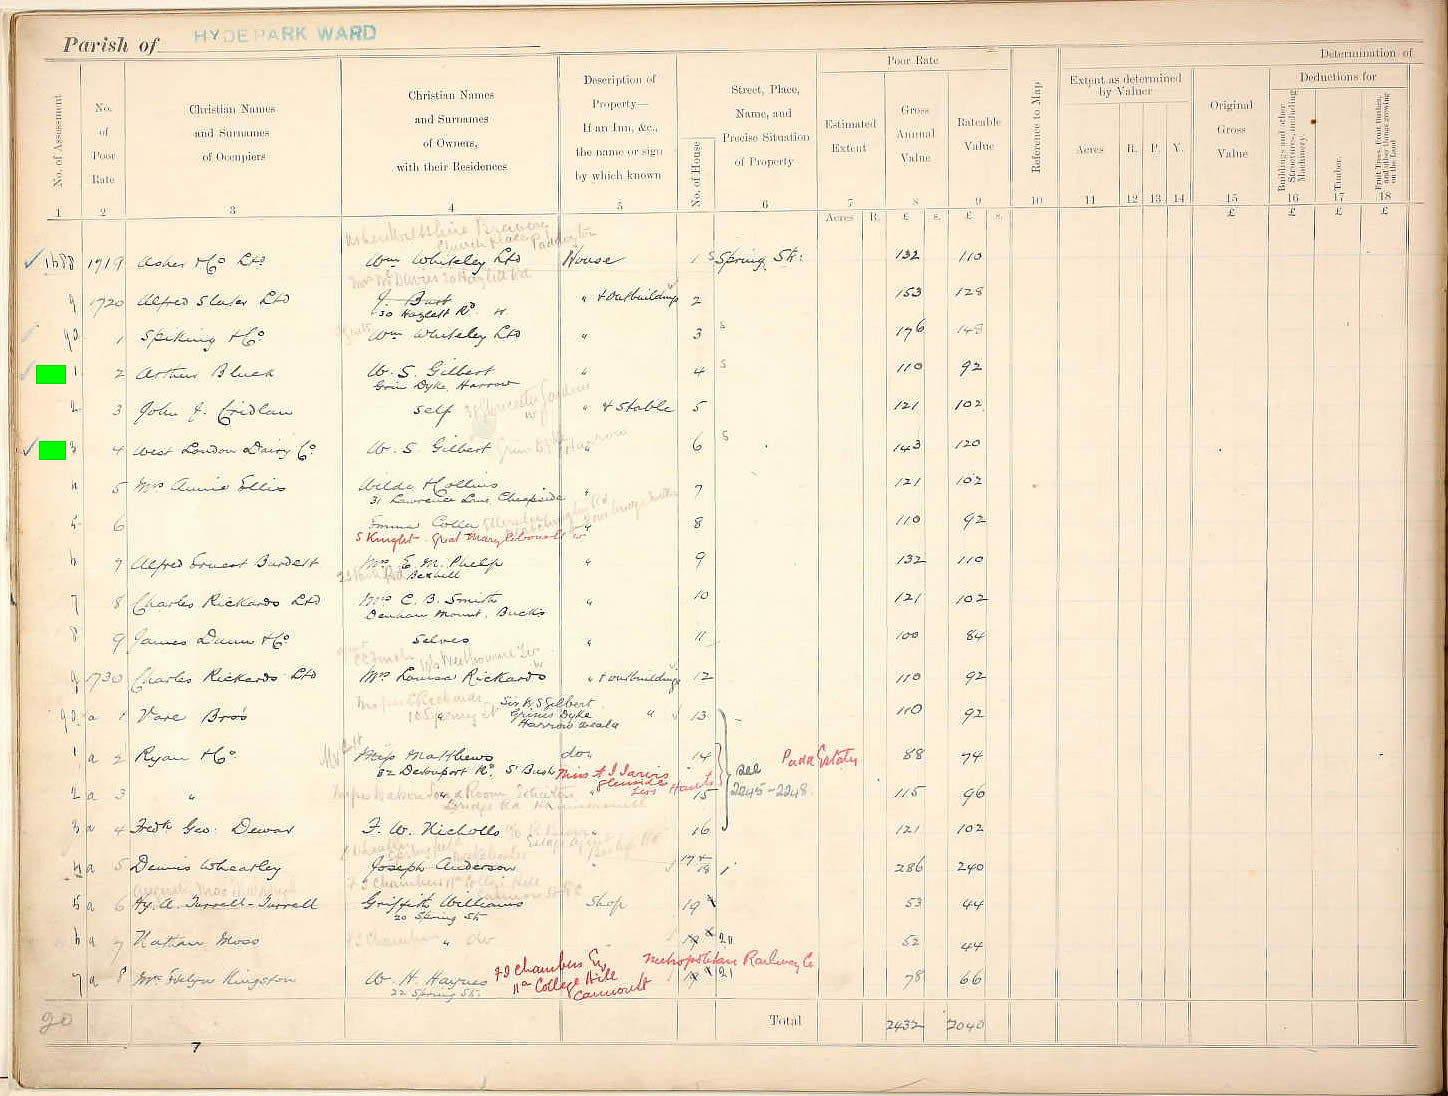 Parish of HYDE PARK WARD
Determination of
Poor Rate
Extent as determined by Valuer
Deductions for
No. of Assessment
No. of Poor Rate
Christian Names and Surnames of Occupiers
Christian Names and Surnames of Owners, with their Residences
Description of Property— If an Inn, &c., the name or sign by which known
No. of House
Street, Place, Name, and Precise Situation of Property
Estimated Extent
Gross Annual Value
Rateable Value
Reference to Map
Acres R. P. Y.
Original Gross Value
Buildings and other Structures, including Machinery.
Timber.
Fruit Trees, Fruit Bushes, and other things growing on the Land
1 2 3 4 5 6 7 8 9 10 11 12 13 14 15 16 17 18
Acres R. £ s. £ s. £ £ £ £
Wiltshire Brewery
Church Place Paddington
1688 1719 Asher & Co Ltd Wm Whiteley Ltd House 1 s Spring St: 132 110
9 1720 Alfred Slater Ltd J. Burt " & Outbuildings 2 153 128
30 Hazlett Rd W.
90 1 Spiking & Co Wm Whiteley Ltd " 3 s 176 148
1 2 Arthur Bluck W. S. Gilbert " 4 s 110 92
Grim Dyke, Harrow
2 3 John J. Cridlan self " & Stable 5 121 102
3 4 West London Dairy Co W. S. Gilbert " 6 s 143 120
4 5 Mrs Annie Ellis Wilde & Collins " 7 121 102
31 Lawrence Lane, Cheapside
5 6 Emma Coller " 8 110 92
S Knight Great Marylebone St W
6 7 Alfred Ernest Burdett Mrs E. M. Phelp " 9 132 110
Bexhill
7 8 Charles Rickards Ltd Mrs C. B. Smith " 10 121 102
Denham Mount, Bucks
8 9 James Dunn & Co Selves " 11 100 84
9 1730 Charles Rickards Ltd Mrs Louisa Rickards " & outbuildings 12 110 92
Sir W S Gilbert
90 a 1 Vare Bros " Grims Dyke " 13 110 92
Harrow Weald
1 a 2 Ryan & Co Miss Matthews do 14 88 74
Padd Estates
82 Devonport Rd, S. Bush Miss A J Jarvis
see
2 a 3 " " " 15 2245-2248 115 96
3 a 4 Fredk Geo. Dewar F. W. Nicholls " 16 121 102
4 a 5 Dennis Wheatley Joseph Anderson " 17 & 18 286 240
5 a 6 Hy. A. Turrell-Turrell Griffith Williams Shop 19 53 44
20 Spring St.
6 a 7 Nathan Moss " do 20 52 44
Metropolitan Railway Co
7 a 8 Mrs Evelyn Kingston W. H. Haynes 21 78 66
22 Spring St.
F J Chambers Esq
11a College Hill
Cannon St
90 Total 2432 2040
7